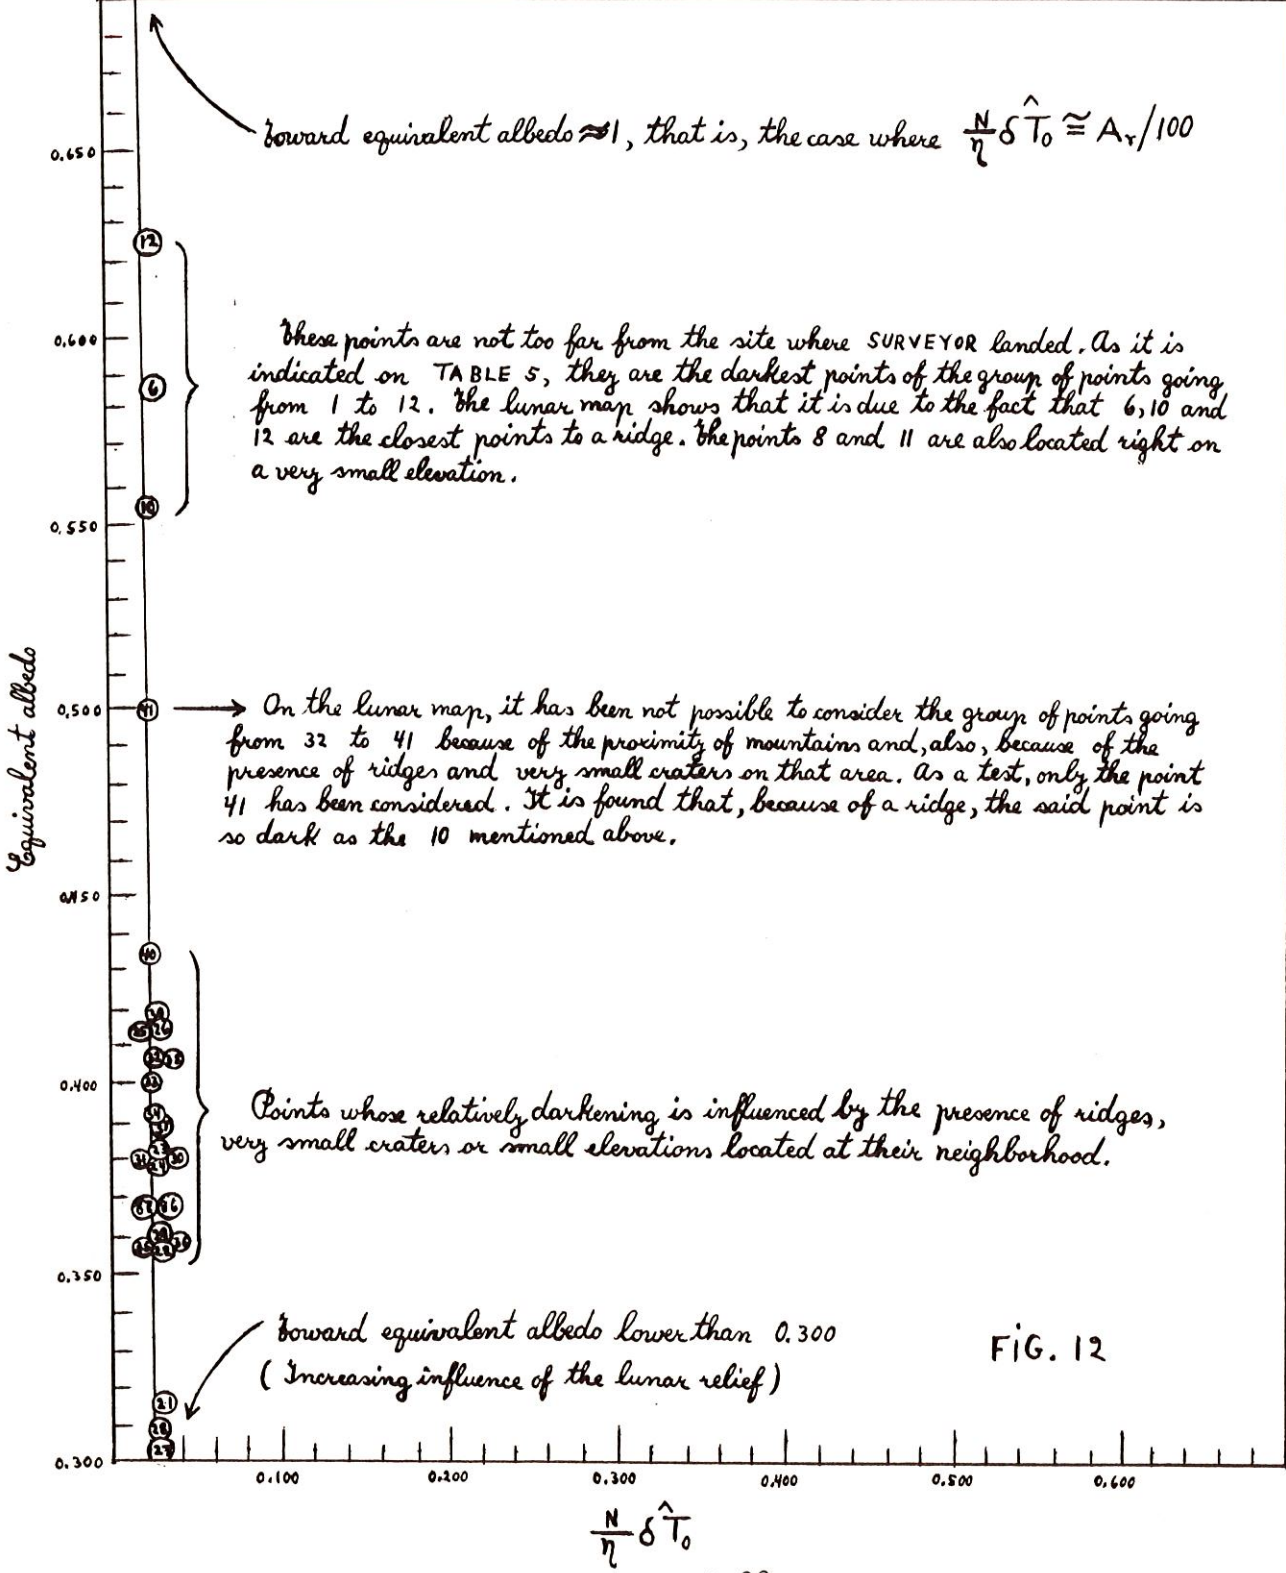 Toward equivalent albedo ≈1, that is, the case where N/η δ T̂₀ ≅ Aᵣ/100
0.650
12
These points are not too far from the site where SURVEYOR landed. As it is
0.600
indicated on TABLE 5, they are the darkest points of the group of points going
6
from 1 to 12. The lunar map shows that it is due to the fact that 6, 10 and
12 are the closest points to a ridge. The points 8 and 11 are also located right on
a very small elevation.
10
0.550
Equivalent albedo
0.500
41
On the lunar map, it has been not possible to consider the group of points going
from 32 to 41 because of the proximity of mountains and, also, because of the
presence of ridges and very small craters on that area. As a test, only the point
41 has been considered. It is found that, because of a ridge, the said point is
so dark as the 10 mentioned above.
0.450
40
26
0.400
Points whose relatively darkening is influenced by the presence of ridges,
very small craters or small elevations located at their neighborhood.
0.350
Toward equivalent albedo lower than 0.300
(Increasing influence of the lunar relief)
FIG. 12
21
28
27
0.300
0.100 0.200 0.300 0.400 0.500 0.600
N/η δ T̂₀